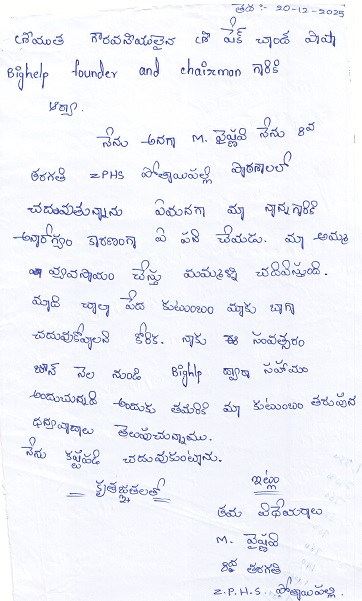 తేది :- 20-12-2025
శ్రీయుత గౌరవనీయులైన శ్రీ షేక్ చాంద్ పాషా
Bighelp founder and chairman గారికి
ఆర్యా.
నేను అనగా M. వైష్ణవి నేను 8వ
తరగతి ZPHS పోతాయిపల్లి పాఠశాలలో
చదువుతున్నాను ఏమనగా మా నాన్నగారికి
అనారోగ్యం కారణంగా ఏ పని చేయడు. మా అమ్మ
వ్యవసాయం చేస్తు మమ్మల్ని చదివిస్తుంది.
మాది చాలా పేద కుటుంబం మాకు బాగా
చదువుకోవాలని కోరిక. నాకు ఈ సంవత్సరం
జూన్ నెల నుండి Bighlp ద్వారా సహాయం
అందుచున్నది అందుకు తమరికి మా కుటుంబం తరుపున
ధన్యవాదాలు తెలుపుచున్నాము.
నేను కష్టపడి చదువుకుంటాను.
= కృతజ్ఞతలతో = ఇట్లు
తమ విధేయురాలు
M. వైష్ణవి
8వ తరగతి
Z.P.H.S పోతాయిపల్లి.